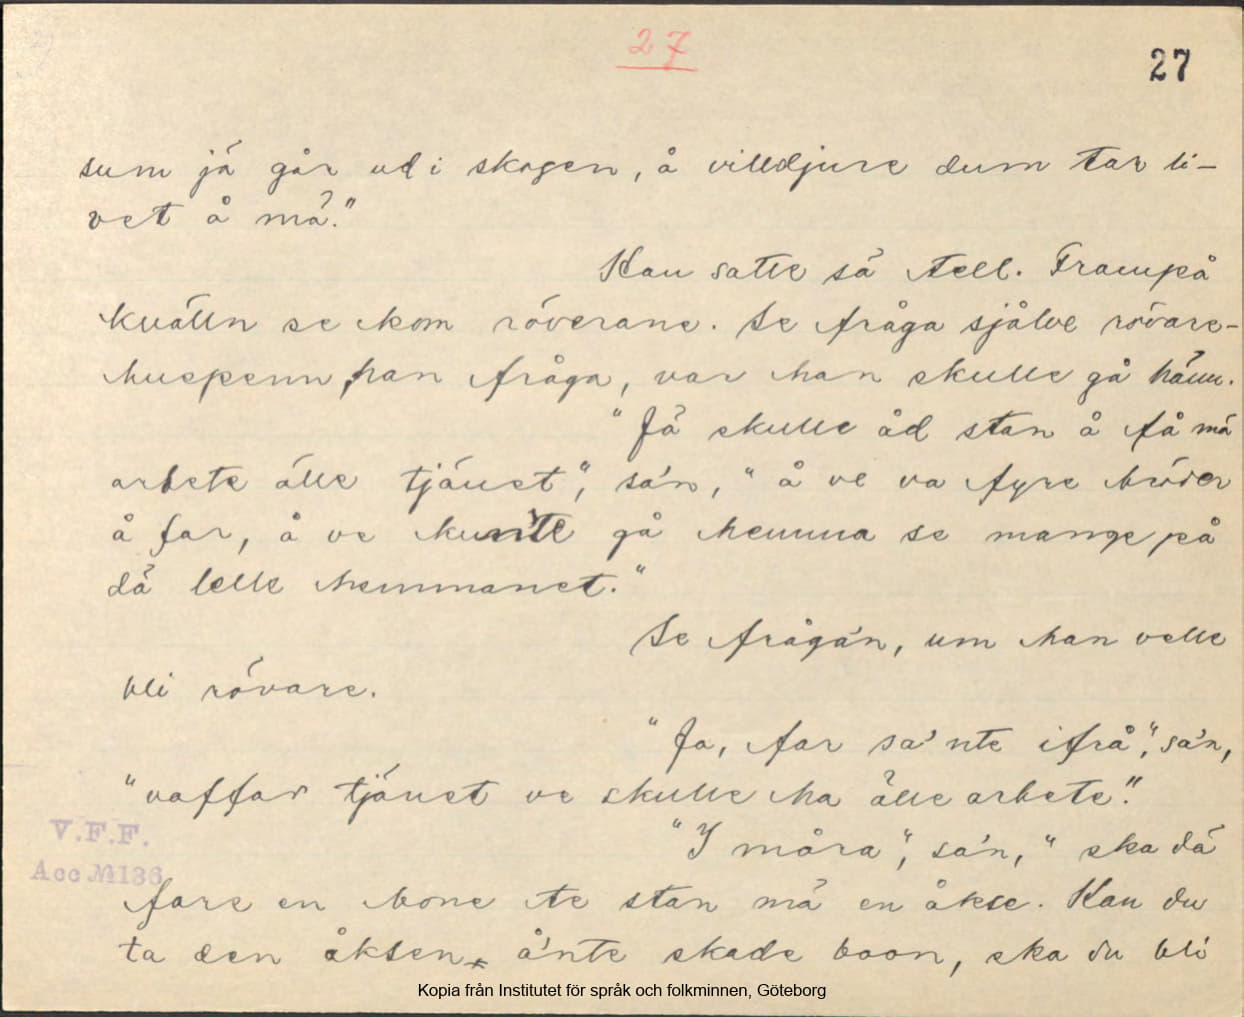 27
27
sum jä går ud i skogen, å villdjure dum tar li-
vet å mä."
Han satte sä tell. Frampå
kvälln se kom röverane. Se fråga själve rövare-
huspenn, han fråga, var han skulle gå hänn.
"Jä skulle åd stan å få mä
arbete älle tjänst", sa'n, "å ve va fyre bröder
å far, å ve kunnte gå hemma se mange på
dä lelle hemmanet."
Se frågå'n, um han velle
bli rövare.
"Ja, far sa'nte ifrå", sa'n,
"vaffar tjänst ve skulle ha älle arbete".
"I måra", sa'n, "ska dä
fare en bone te stan mä en åkse. Kan du
ta den åksen å'nte skade boon, ska du bli
V.F.F.
Acc № 136
Kopia från Institutet för språk och folkminnen, Göteborg